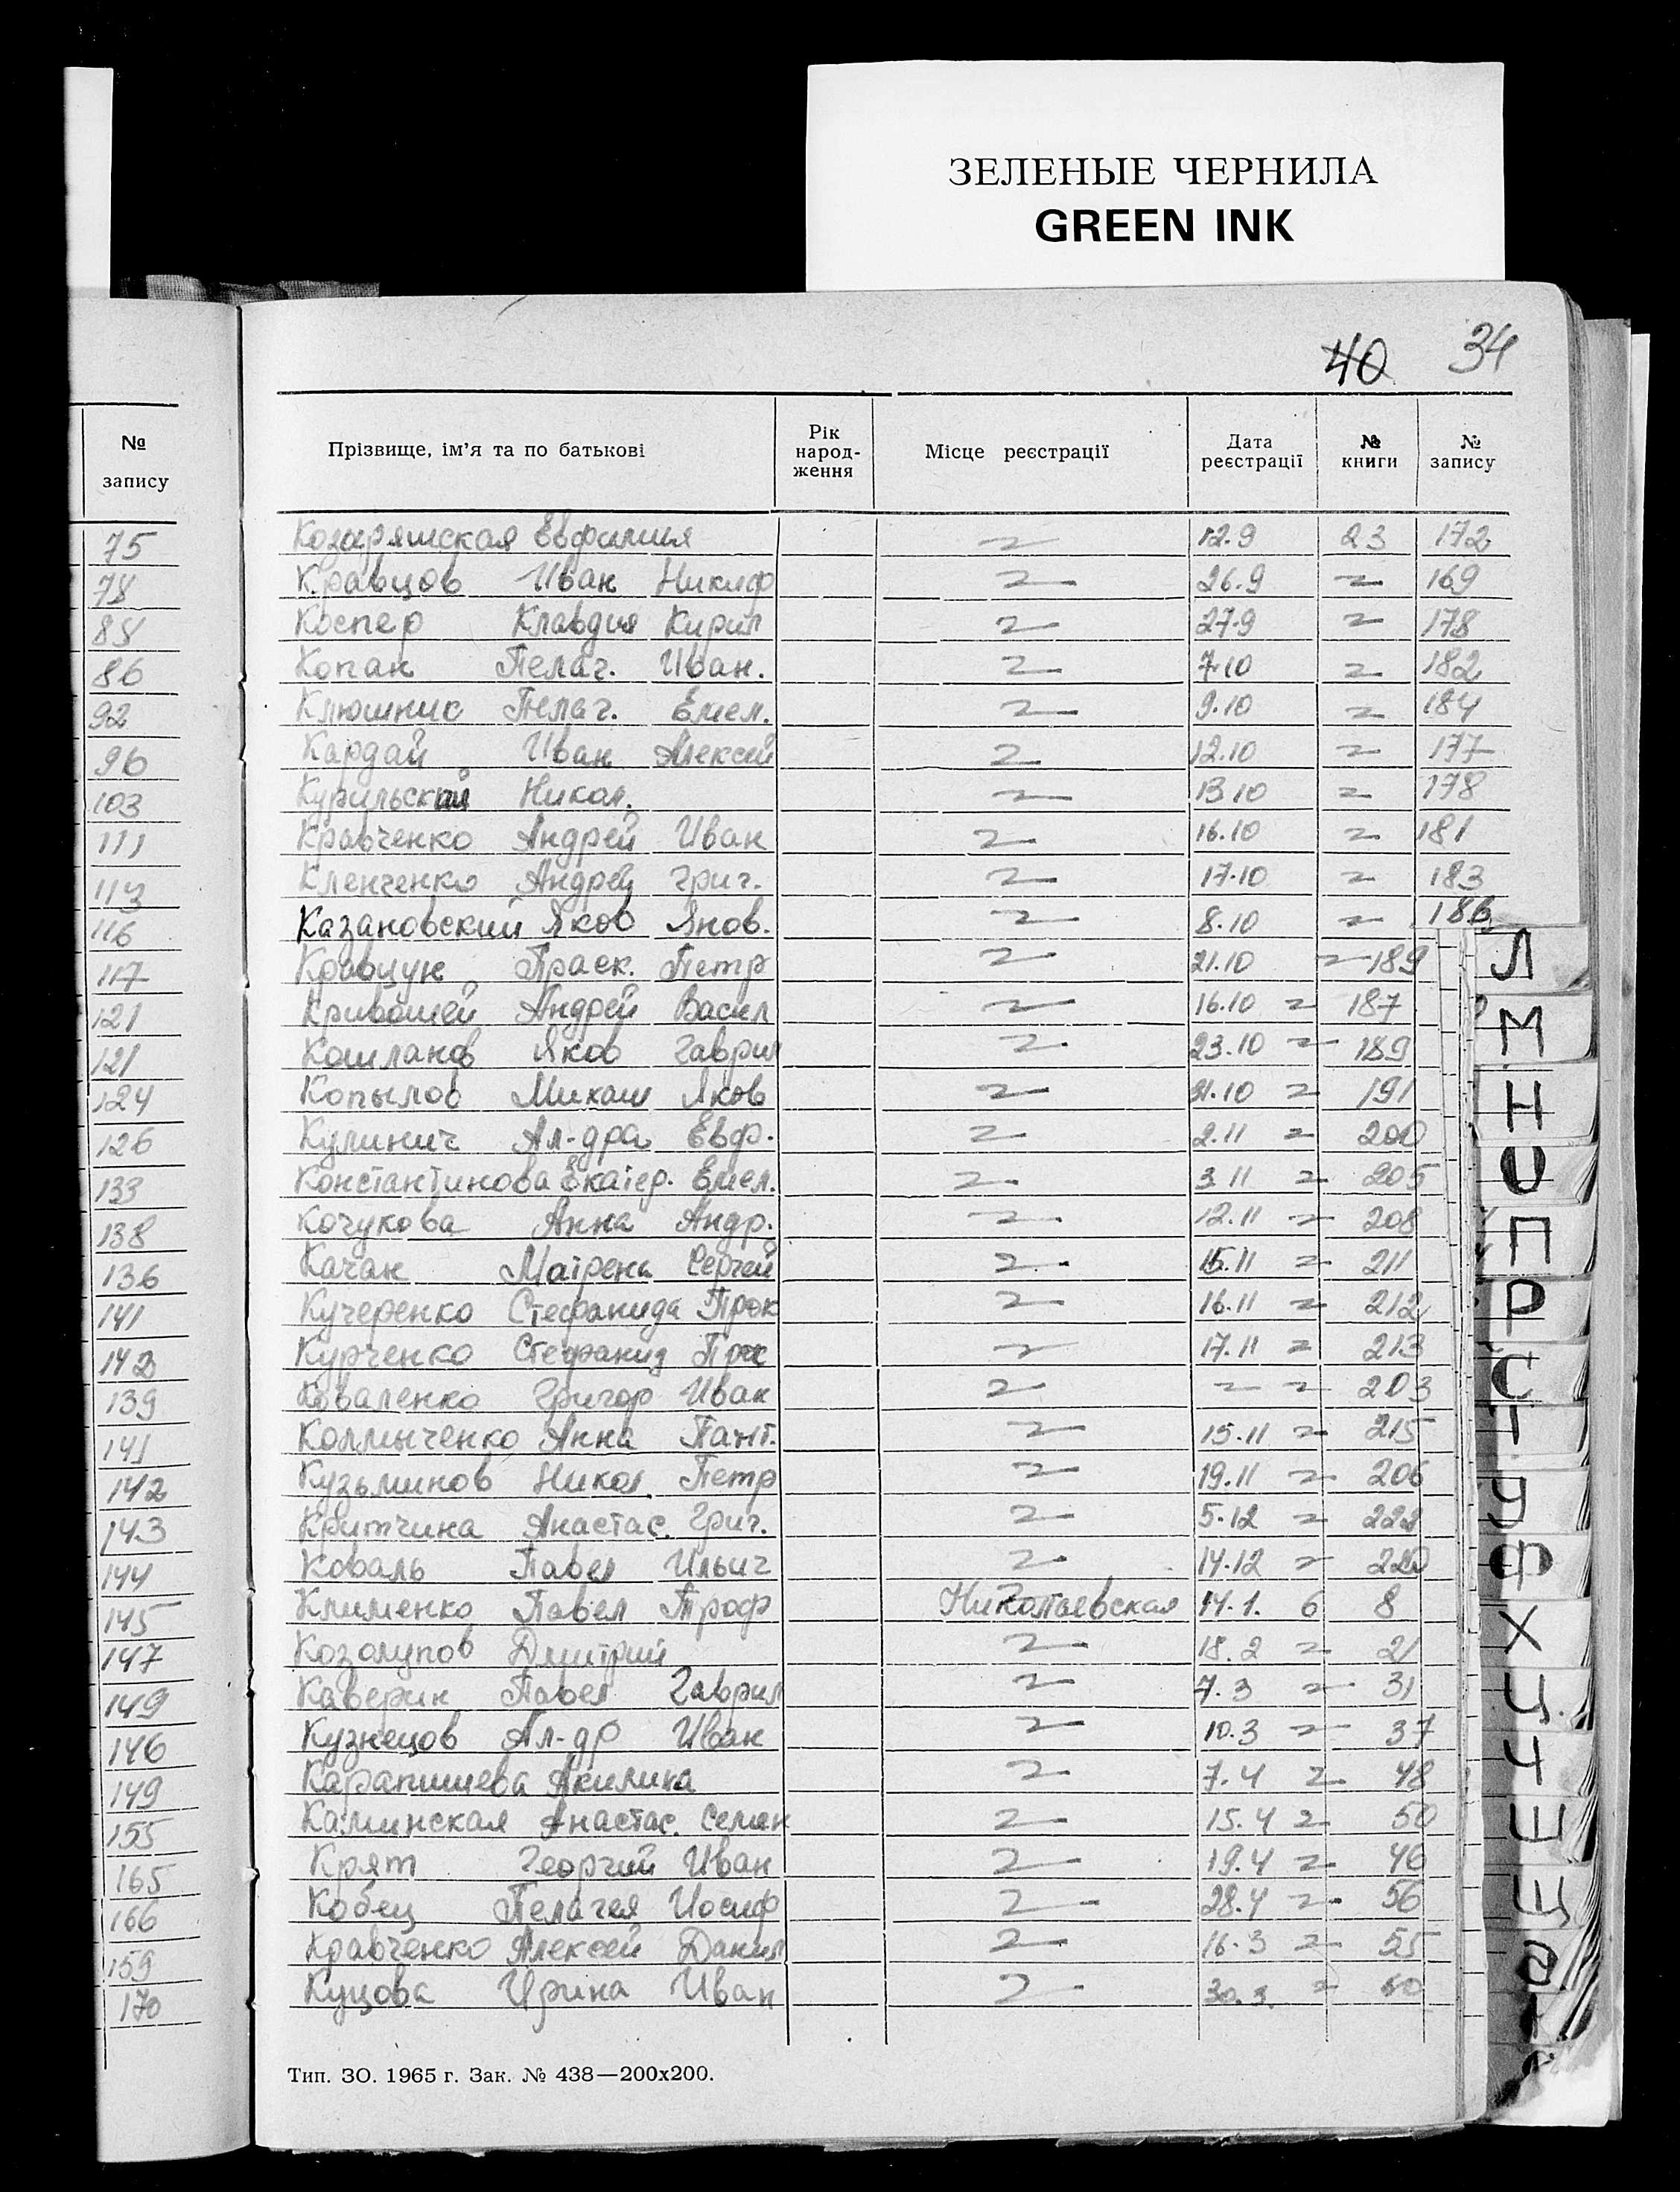 ЗЕЛЕНЫЕ ЧЕРНИЛА
GREEN INK
40 34
№ запису
75
78
85
86
92
96
103
111
113
116
117
121
121
124
126
133
138
136
141
142
139
141
142
143
144
145
147
149
146
149
155
165
166
159
170
Прізвище, ім'я та по батькові Рік народ-ження Місце реєстрації Дата реєстрації № книги № запису
Евфимия 12.9 23 172
Кравцов Иван Никиф 26.9 169
Коспер Клавдия Кирил 27.9 178
Копан Пелаг. Иван. 7.10 182
Клюшник Пелаг. Емел. 9.10 184
Кардай Иван Алексей 12.10 177
Курильский Никол. 13 10 178
Кравченко Андрей Иван 16.10 181
Кленченко Андрей Григ. 17.10 183
Казановский Яков Янов. 8.10 186
Кравцун Праск. Петр 21.10 189
Кривошей Андрей Васил 16.10 187
Кошланов Яков Гаврил 23.10 189
Копылов Михаил Яков 31.10 191
Кулинич Ал-дра Евф. 2.11 200
Константинова Екатер. Емел. 3 11 205
Кочукова Анна Андр. 12.11 208
Качан Матрена Сергей 15.11 211
Кучеренко Стефанида Прок 16.11 212
Курченко Стефанид 17.11 213
Коваленко Григор Иван 203
Колмыченко Анна Пант. 15.11 215
Кузьминов Никол Петр 19.11 206
Критчина Анастас. Григ. 5.12 222
Коваль Павел Ильич 14.12 220
Клименко Павел Троф Николаевская 14.1. 6 8
Козолупов Дмитрий 18.2 21
Каверин Павел Гаврил 7.3 31
Кузнецов Ал-др Иван 10.3 37
Карапишева Акилина 7.4 48
Каминская Анастас. Семен 15.4 50
Крят Георгий Иван 19.4 46
Кобец Пелагея Иосиф 28.4 56
Кравченко Алексей Данил 16.3 55
Куцова Ирина Иван 30.3.
Л
М
Н
О
П
Р
С
Т
У
Ф
Х
Ц
Ч
Ш
Щ
Тип. ЗО. 1965 г. Зак. № 438—200х200.